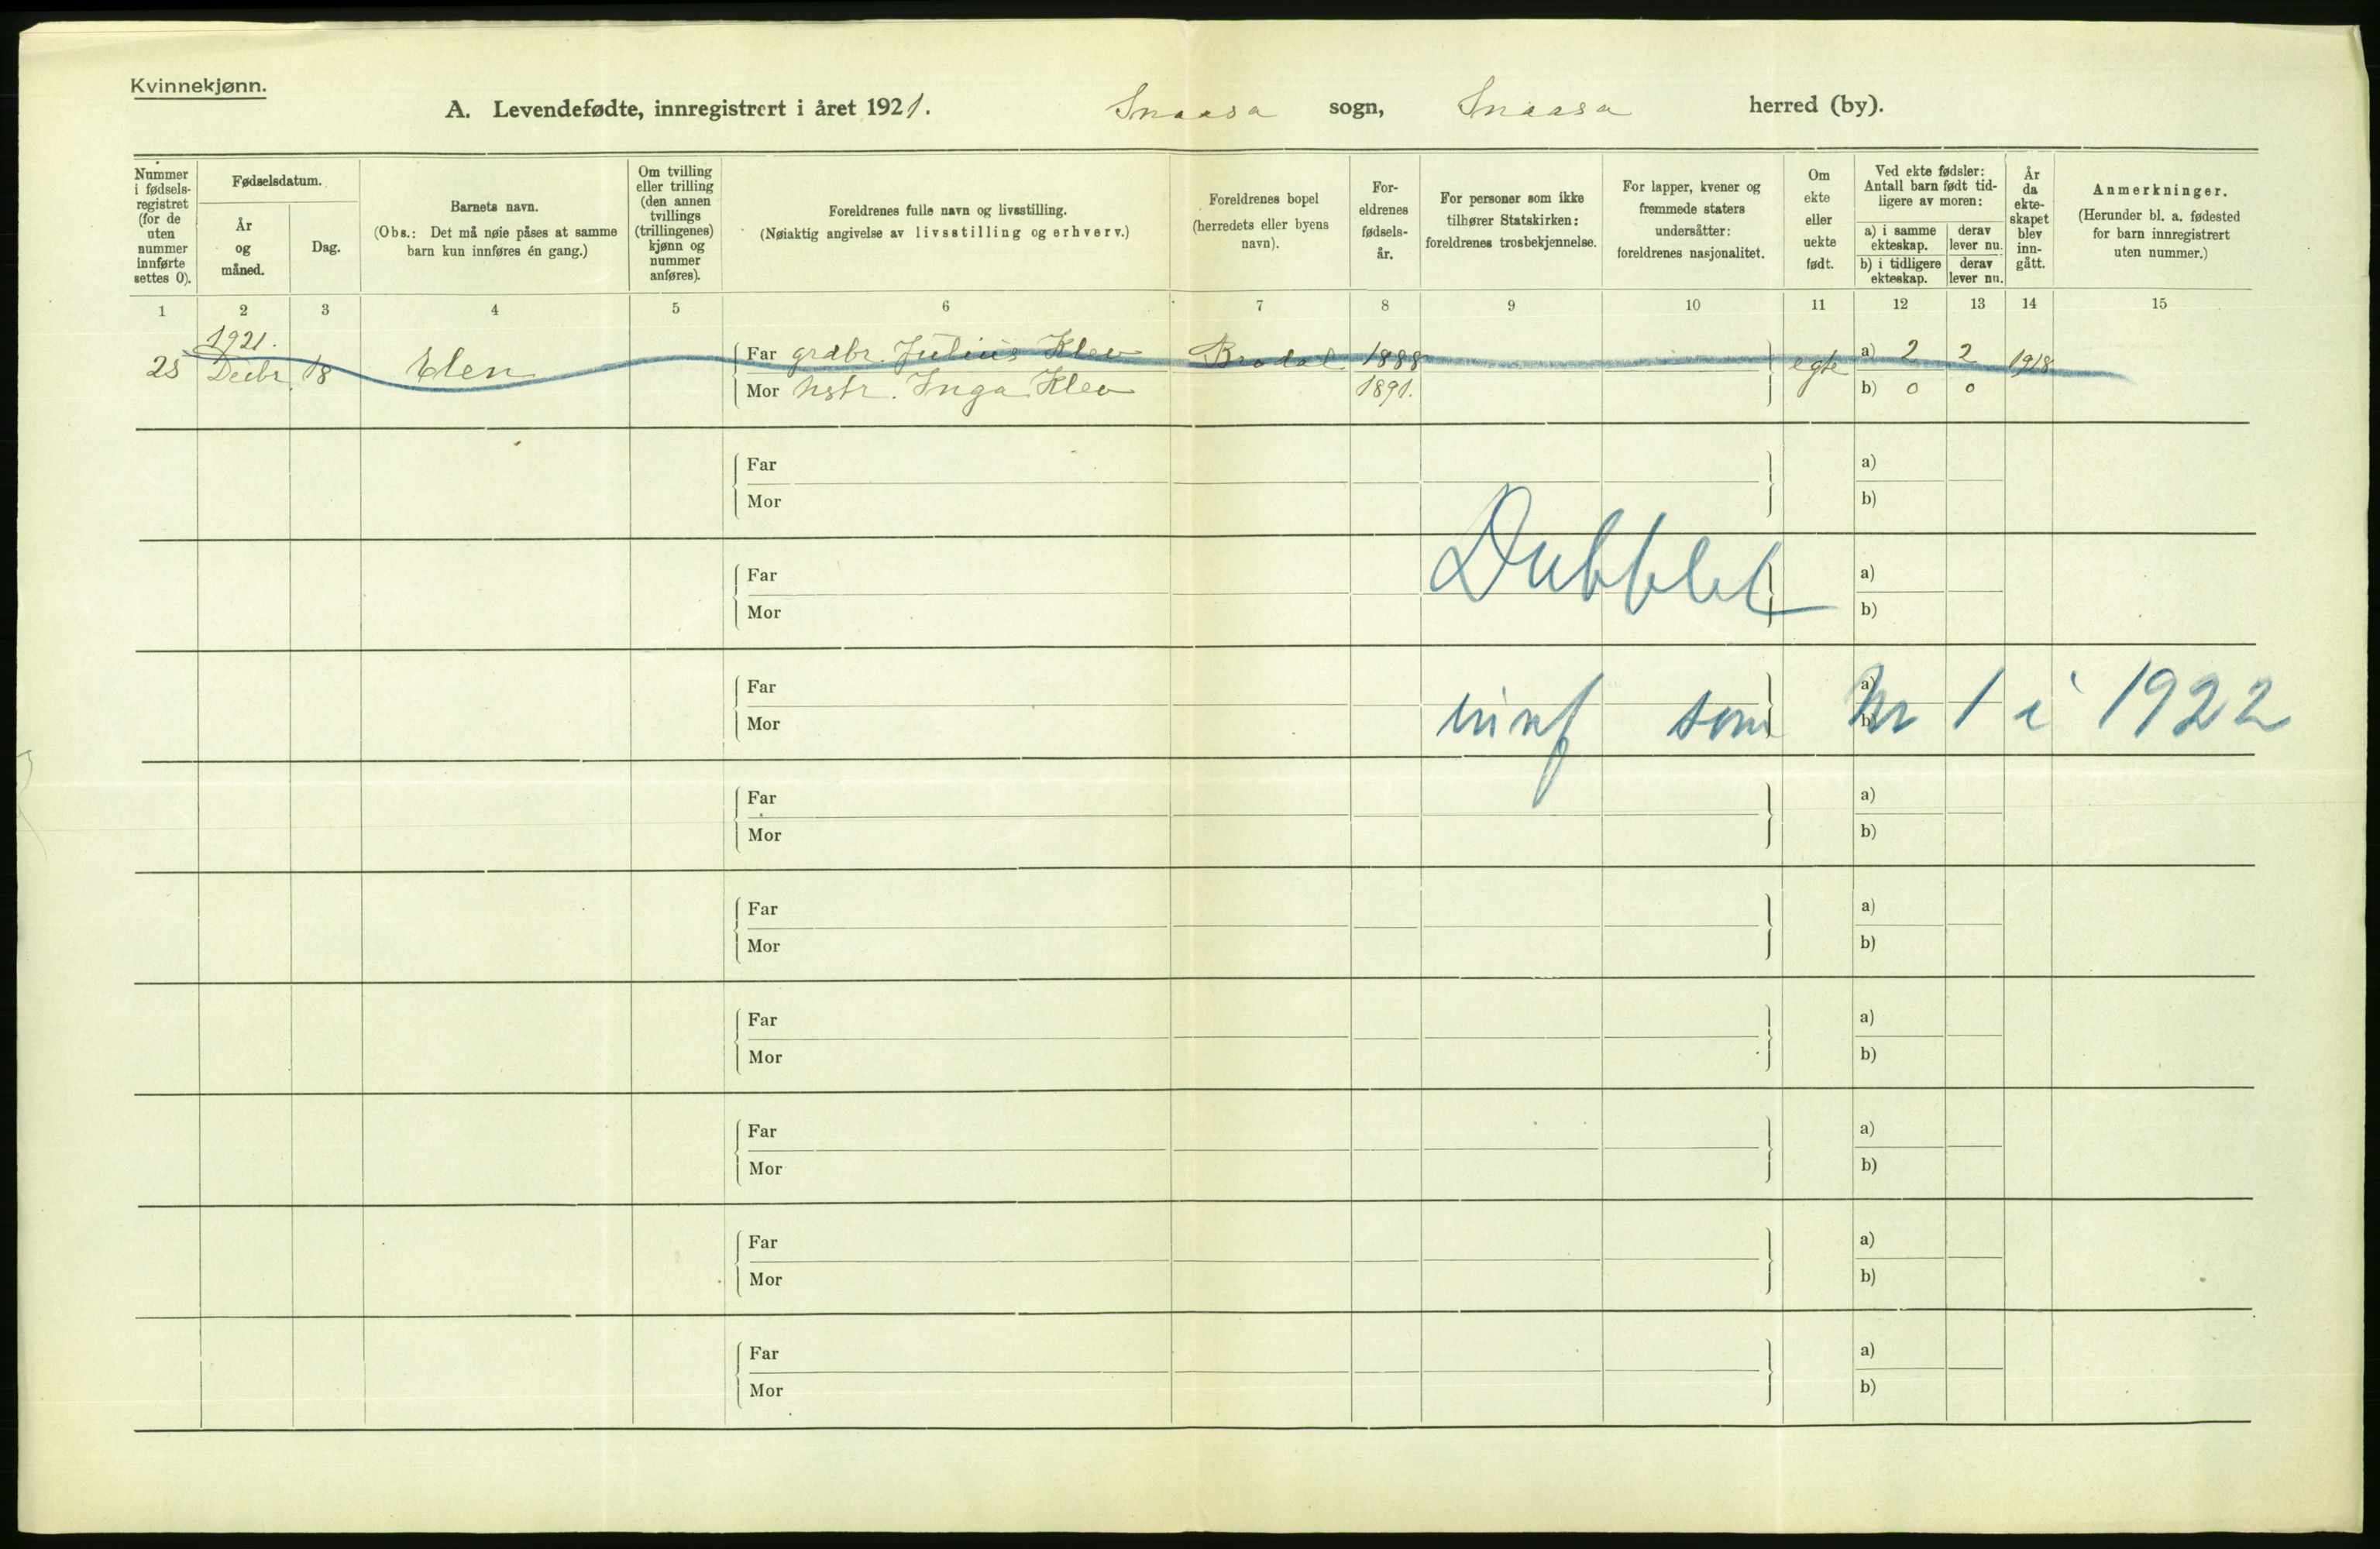 Kvinnekjønn.
A. Levendefødte, innregistrert i året 1921. Snaasa sogn, Snaasa herred (by).
Nummer i fødsels-registret (for de uten nummer innførte settes 0).
Fødselsdatum.
År og måned.
Dag.
Barnets navn.
(Obs.: Det må nøie påses at samme barn kun innføres én gang.)
Om tvilling eller trilling (den annen tvillings (trillingenes) kjønn og nummer anføres).
Foreldrenes fulle navn og livsstilling.
(Nøiaktig angivelse av livsstilling og erhverv.)
Foreldrenes bopel (herredets eller byens navn).
For-eldrenes fødsels-år.
For personer som ikke tilhører Statskirken: foreldrenes trosbekjennelse.
For lapper, kvener og fremmede staters undersåtter: foreldrenes nasjonalitet.
Om ekte eller uekte født.
Ved ekte fødsler: Antall barn født tid-ligere av moren:
a) i samme ekteskap.
derav lever nu.
b) i tidligere ekteskap.
derav lever nu.
År da ekte-skapet blev inn-gått.
Anmerkninger.
(Herunder bl. a. fødested for barn innregistrert uten nummer.)
1 2 3 4 5 6 7 8 9 10 11 12 13 14 15
1921.
25 Decbr. 18 Elen Far grdbr. Julius Klev 1888 egte a) 2 2 1918
Mor hstr. Inga Klev 1891. b) 0 0
Far a)
Mor b)
Dubblet
Far a)
Mor b)
Far a)
innf som Nr 1 i 1922
Mor b)
Far a)
Mor b)
Far a)
Mor b)
Far a)
Mor b)
Far a)
Mor b)
Far a)
Mor b)
Far a)
Mor b)